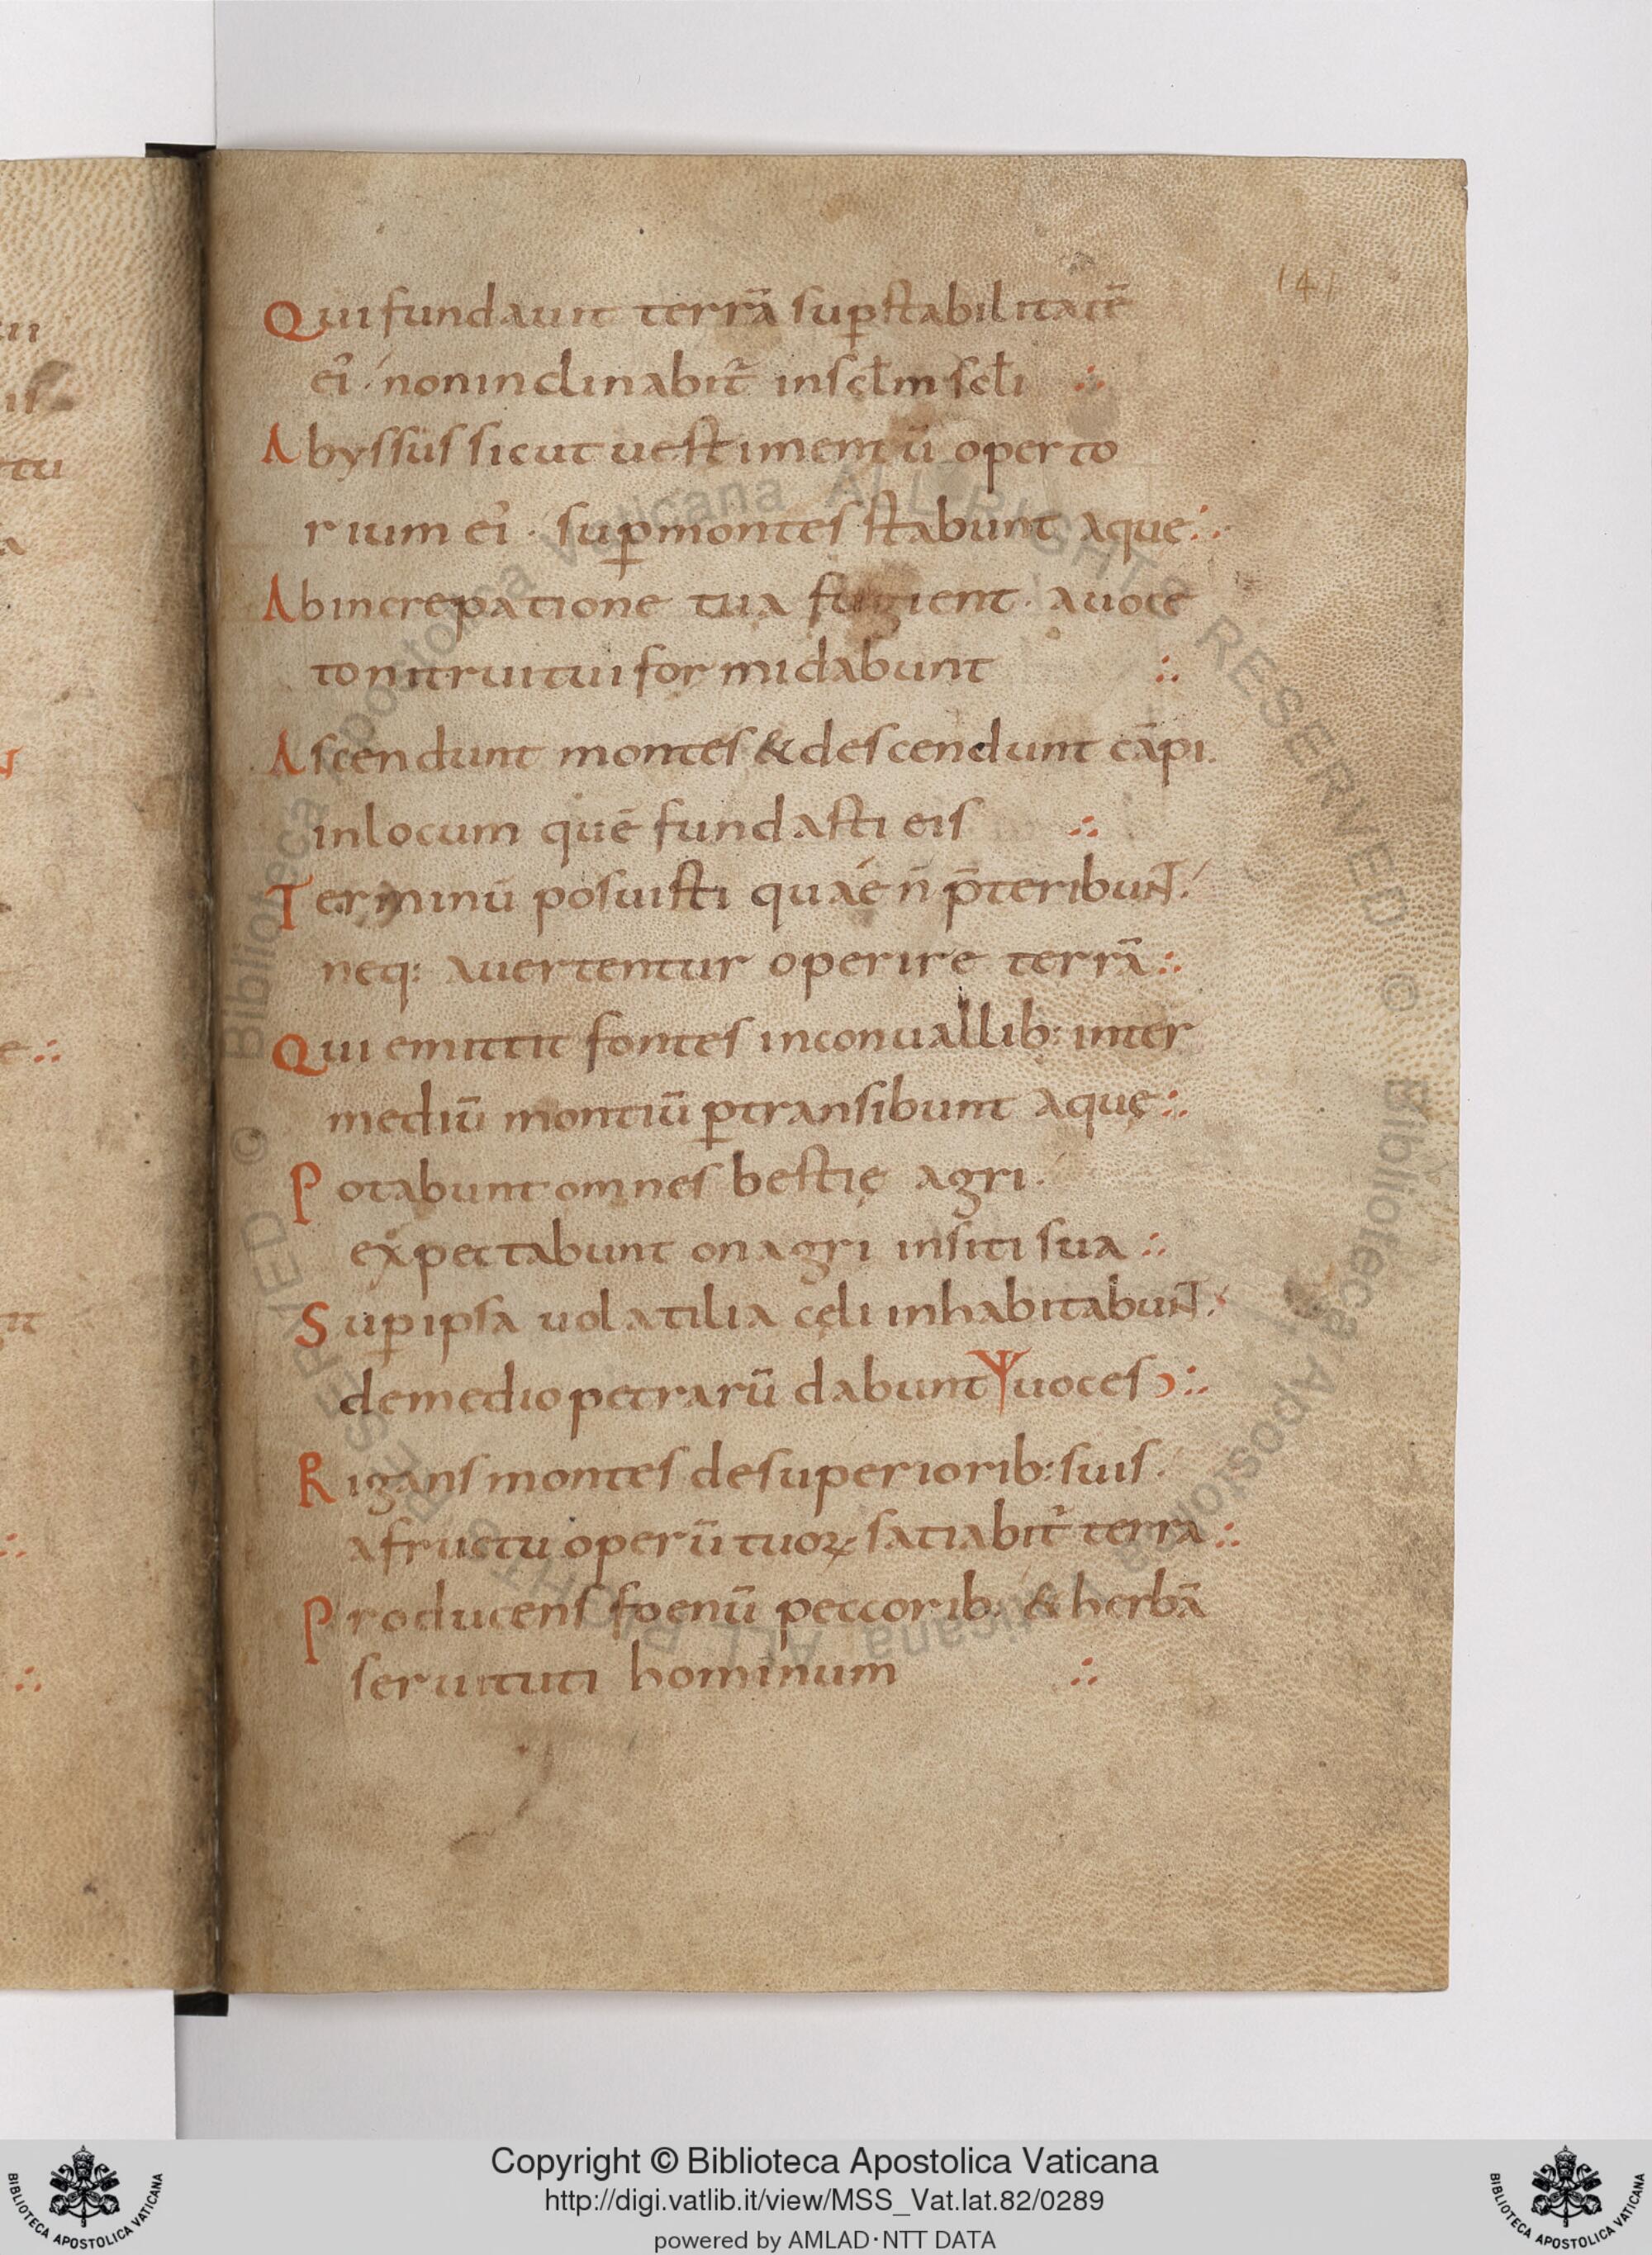 141
Qui fundauit terrā sup̱ stabilitatē
ei᾽ · non inclinabit᾽ in scl̄m scl̄i ∴
Abyssus sicut uestimentū operto
rium ei᾽ · sup̱ montes stabunt aque ∴
Ab increpatione tua fugient · a uoce
tonitrui tui formidabunt ∴
Ascendunt montes & descendunt cāpi ·
in locum quē fundasti eis ∴
Terminū posuisti quáe n̄ p̄teribunt ·
neq: auertentur operire terrā ∴
Qui emittit fontes in conuallib: inter
mediū montiū ꝑtransibunt aquę ∴
Potabunt omnes bestię agri ·
expectabunt onagri in siti sua ∴
Suꝑ ipsa uolatilia cęli inhabitabunt ·
de medio petrarū dabunt uoces ∴
Rigans montes de superiorib: suis ·
a fructu operū tuoꝝ satiabit᾽ terra ∴
Producens foenū peccorib: & herbā
seruituti hominum ∴
Copyright © Biblioteca Apostolica Vaticana
http://digi.vatlib.it/view/MSS_Vat.lat.82/0289
powered by AMLAD·NTT DATA
BIBLIOTECA APOSTOLICA VATICANA
BIBLIOTECA APOSTOLICA VATICANA